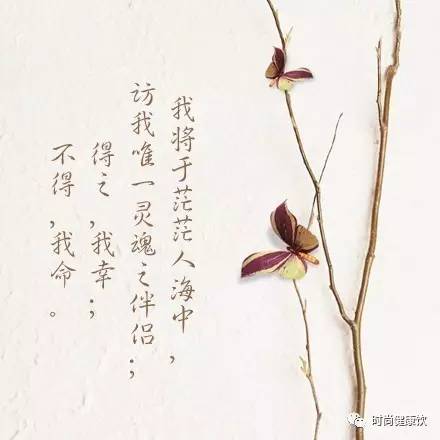 我将于茫茫人海中，
访我唯一灵魂之伴侣；
得之，我幸；
不得，我命。
时尚健康饮